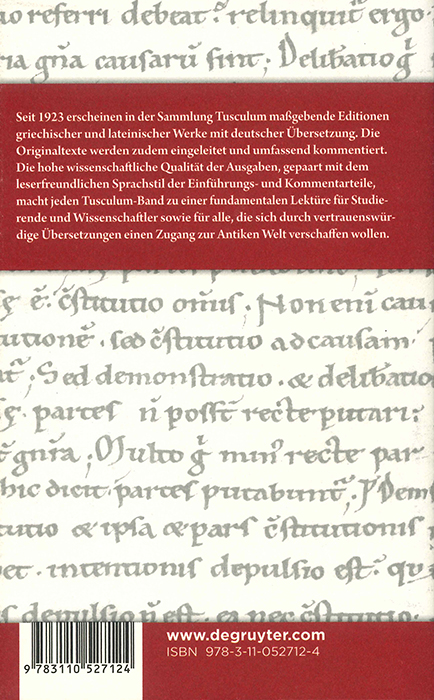 io referri debeat relinquit ergo
ria gna causaru sint; Delibatio g
Seit 1923 erscheinen in der Sammlung Tusculum maßgebende Editionen
griechischer und lateinischer Werke mit deutscher Übersetzung. Die
Originaltexte werden zudem eingeleitet und umfassend kommentiert.
Die hohe wissenschaftliche Qualität der Ausgaben, gepaart mit dem
leserfreundlichen Sprachstil der Einführungs- und Kommentarteile,
macht jeden Tusculum-Band zu einer fundamentalen Lektüre für Studie-
rende und Wissenschaftler sowie für alle, die sich durch vertrauenswür-
dige Übersetzungen einen Zugang zur Antiken Welt verschaffen wollen.
cstitutio omis; Non eni cau
sed cstitutio ad causam
Sed demonstratio. & deliba
partes n posst recte putari:
gnra; Multo g min recte par
hic dicit partes putabunt; Dem
tutio & ipsa & pars cstitutionis
intentionis depulsio est. qu
depulsio n est. ea nec cstitutio
9 783110 527124
www.degruyter.com
ISBN 978-3-11-052712-4